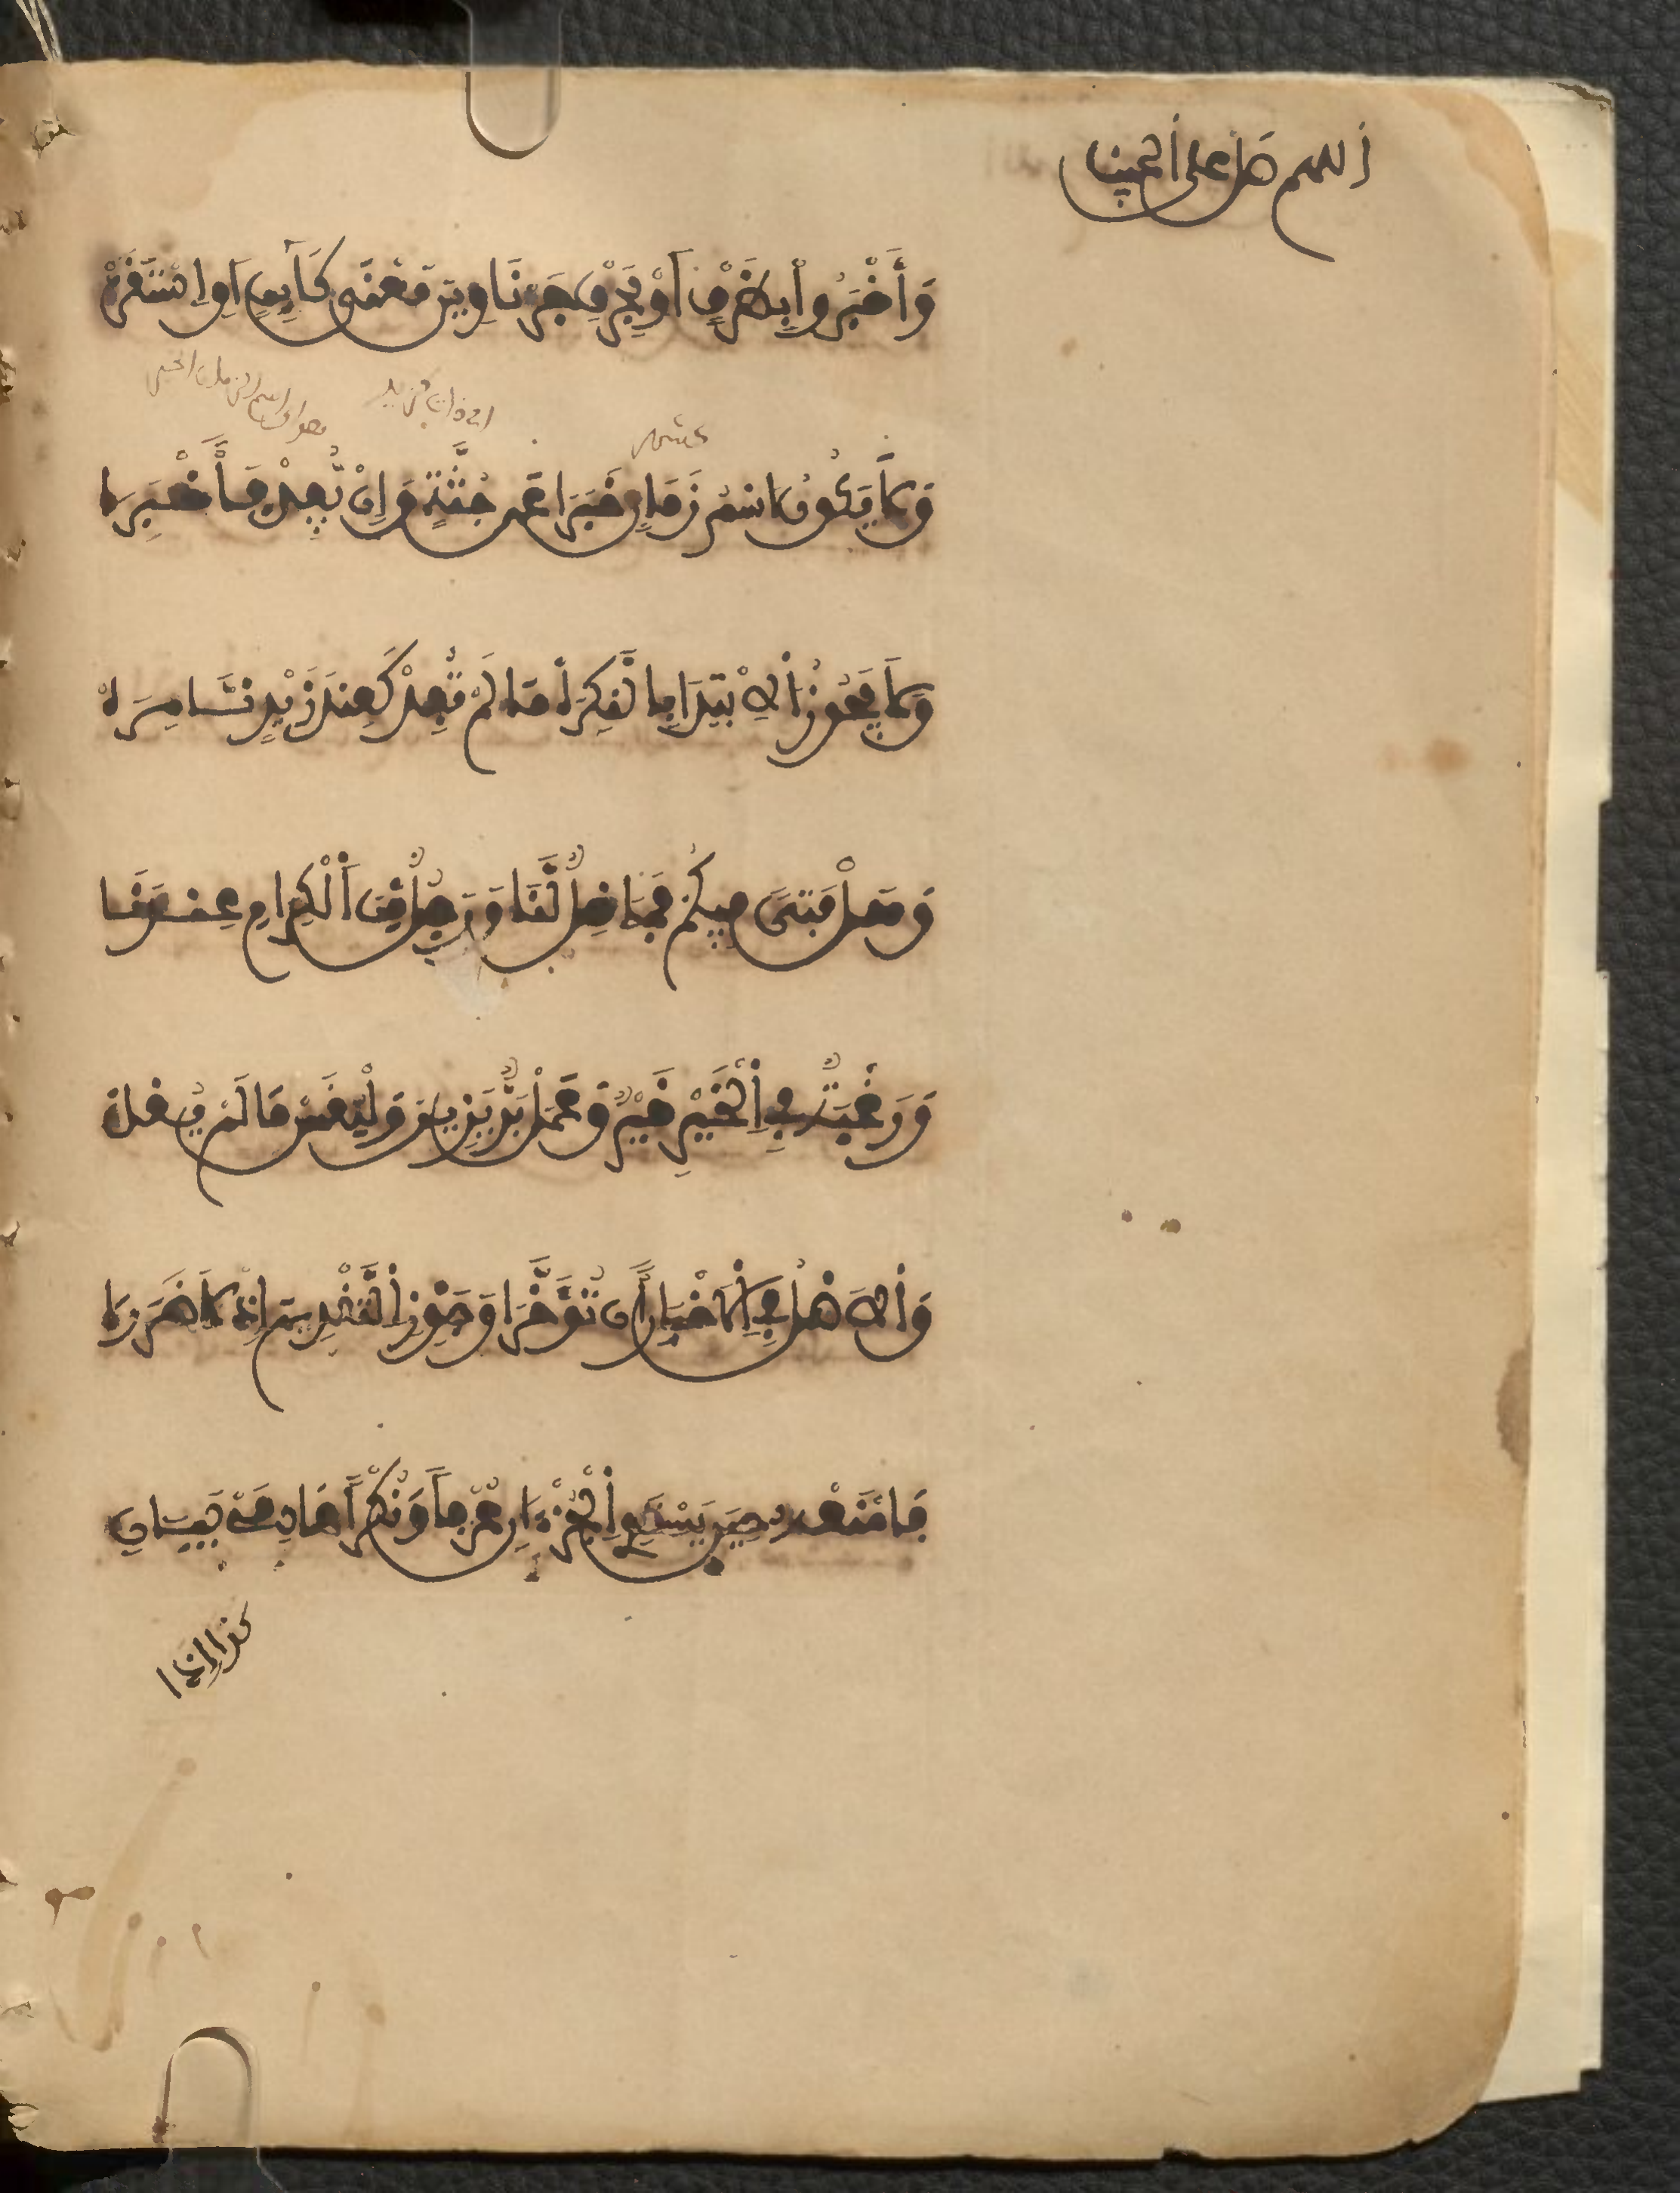 اللهم صل على الحبيب
وَأَخْبَرُوا بِظَرْفٍ أَوْ بِحَرْفِ جَرْ نَاوِينَ مَعْنَى كَائِنٍ أَوِ اسْتَقَرْ
عنه
وَلَا يَكُونُ اسْمُ زَمَانٍ خَبَرَا عَنْ جُثَّةٍ وَإِنْ يُفِدْ فَأَخْبِرَا
وَلَا يَجُوزُ الِابْتِدَا بِالنَّكِرَهْ مَا لَمْ تُفِدْ كَعِنْدَ زَيْدٍ نَمِرَهْ
وَهَلْ فَتًى فِيكُمْ فَمَا خِلٌّ لَنَا وَرَجُلٌ مِنَ الْكِرَامِ عِنْدَنَا
وَرَغْبَةٌ فِي الْخَيْرِ خَيْرٌ وَعَمَلْ بِرٍّ يَزِينُ وَلْيُقَسْ مَا لَمْ يُقَلْ
وَالْأَصْلُ فِي الْأَخْبَارِ أَنْ تُؤَخَّرَا وَجَوَّزُوا التَّقْدِيمَ إِذْ لَا ضَرَرَا
فَامْنَعْهُ حِينَ يَسْتَوِي الْجُزْءَانِ عُرْفًا وَنُكْرًا عَادِمَيْ بَيَانِ
كذا إذا